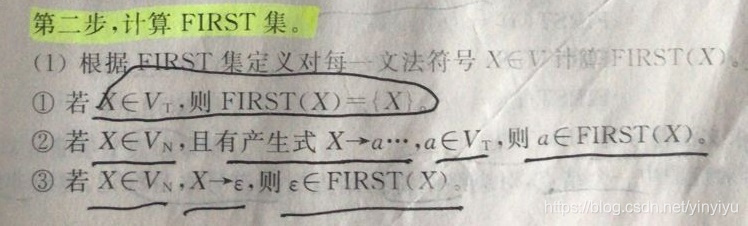 第二步,计算 FIRST 集。
(1) 根据 FIRST 集定义对每一文法符号 X∈V 计算 FIRST(X)。
① 若 X∈V_T,则 FIRST(X)={X}。
② 若 X∈V_N,且有产生式 X→a…,a∈V_T,则 a∈FIRST(X)。
③ 若 X∈V_N,X→ε,则 ε∈FIRST(X)。
https://blog.csdn.net/yinyiyu